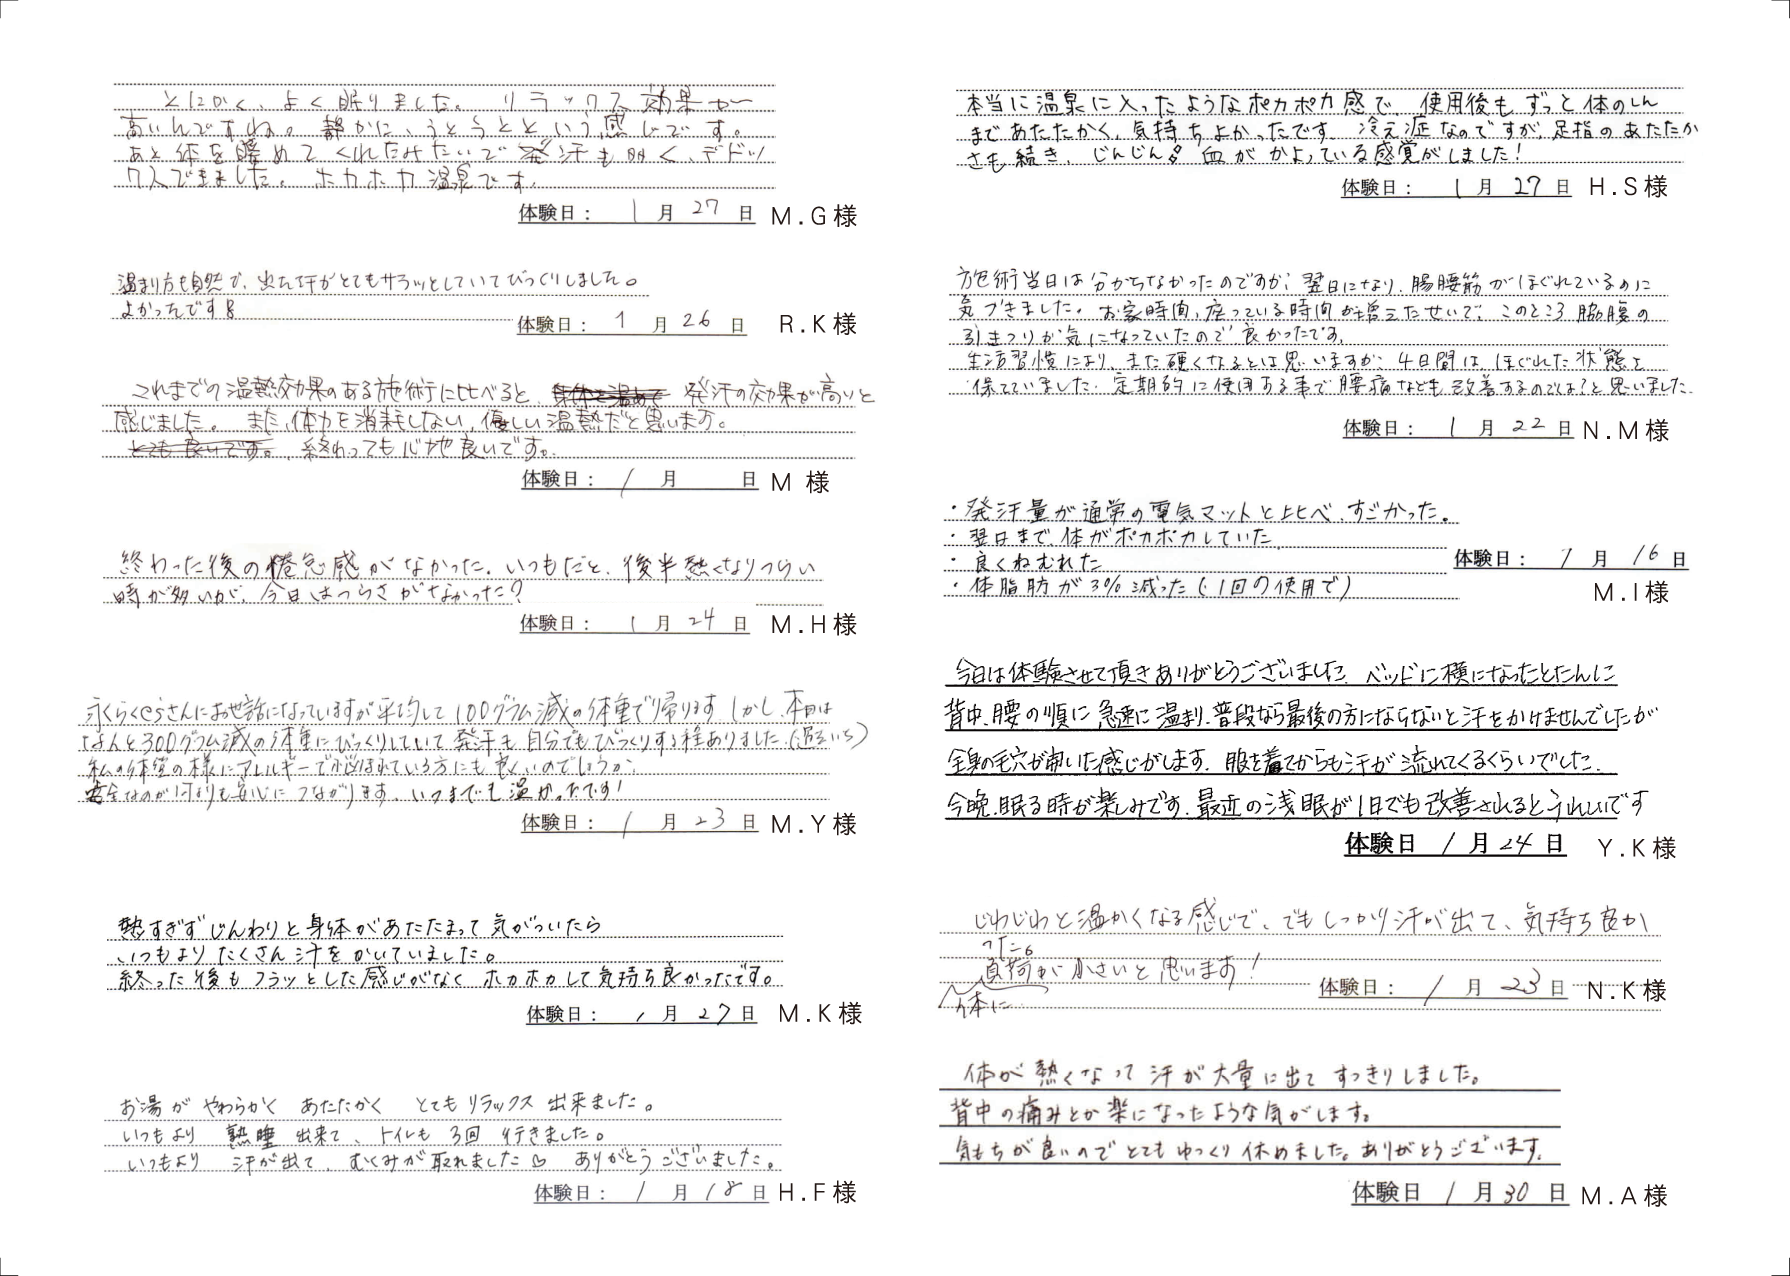 とにかく、よく眠りました。 リラックス効果が
高いんですね。静かに、うとうとという感じです。
あと体を暖めてくれたみたいで発汗も多く、デドッ
クスできました。ホカホカ温泉です。
体験日： 1 月 27 日 M.G様
温まり方も自然で、出た汗がとてもサラッとしていてびっくりしました。
よかったです
体験日： 1 月 26 日 R.K様
これまでの温熱効果のある施術に比べると、 発汗の効果が高いと
感じました。また、体力を消耗しない、優しい温熱だと思います。
とても良いです。終わっても心地良いです。
体験日： 1 月 日 M 様
終わった後の倦怠感がなかった。いつもだと、後半熱くなりつらい
時が多いが、今日はつらさがなかった?
体験日： 1 月 24 日 M.H様
さんにお世話になっていますが平均して100グラム減の体重で帰ります。しかし、本日は
なんと300グラム減の体重にびっくりしていて発汗も自分でもびっくりする程ありました。
私の体質の様にアレルギーで悩まれている方にも良いのでしょうか。
安全なのが何よりも安心につながります。いつまでも温かったです!
体験日： 1 月 23 日 M.Y様
熱すぎずじんわりと身体があたたまって気がついたら
いつもよりたくさん汗をかいていました。
終った後もフラッとした感じがなく ホカホカして気持ち良かったです。
体験日： 1 月 27 日 M.K様
お湯が やわらかく あたたかく とてもリラックス出来ました。
いつもより 熟睡 出来て、トイレも 3回 行きました。
いつもより 汗が出て、むくみが取れました♡ ありがとうございました。
体験日： 1 月 18 日 H.F様
本当に温泉に入ったようなポカポカ感で、使用後もずっと体のしん
まであたたかく、気持ちよかったです。冷え症なのですが、足指のあたたか
さも続き、じんじん 血がかよっている感覚がしました!
体験日： 1 月 27 日 H.S様
施術当日は分からなかったのですが、翌日になり、腸腰筋がほぐれているのに
気づきました。お家時間、座っている時間が増えたせいで、このところ脇腹の
引きつりが気になっていたので良かったです。
生活習慣により、また硬くなるとは思いますが、4日間は、ほぐれた状態を
保てていました。定期的に使用する事で腰痛なども改善するのでは?と思いました。
体験日： 1 月 22 日 N.M様
・発汗量が通常の電気マットと比べ、すごかった。
・翌日まで、体がポカポカしていた
・良くねむれた
・体脂肪が3%減った(1回の使用で)
体験日： 1 月 16 日
M.I様
今日は体験させて頂きありがとうございました。ベッドに横になったとたんに
背中、腰の順に急速に温まり、普段なら最後の方にならないと汗をかけませんでしたが
全身の毛穴が開いた感じがします。服を着てからも汗が流れてくるくらいでした。
今晩、眠る時が楽しみです。最近の浅眠が1日でも改善されるとうれしいです
体験日 1 月 24 日 Y.K様
じわじわと温かくなる感じで、でもしっかり汗が出て、気持ち良か
った。
体に負荷が小さいと思います!
体験日： 1 月 23 日 N.K様
体が熱くなって汗が大量に出てすっきりしました。
背中の痛みとか楽になったような気がします。
気もちが良いのでとてもゆっくり休めました。ありがとうございます。
体験日 1 月 30 日 M.A様